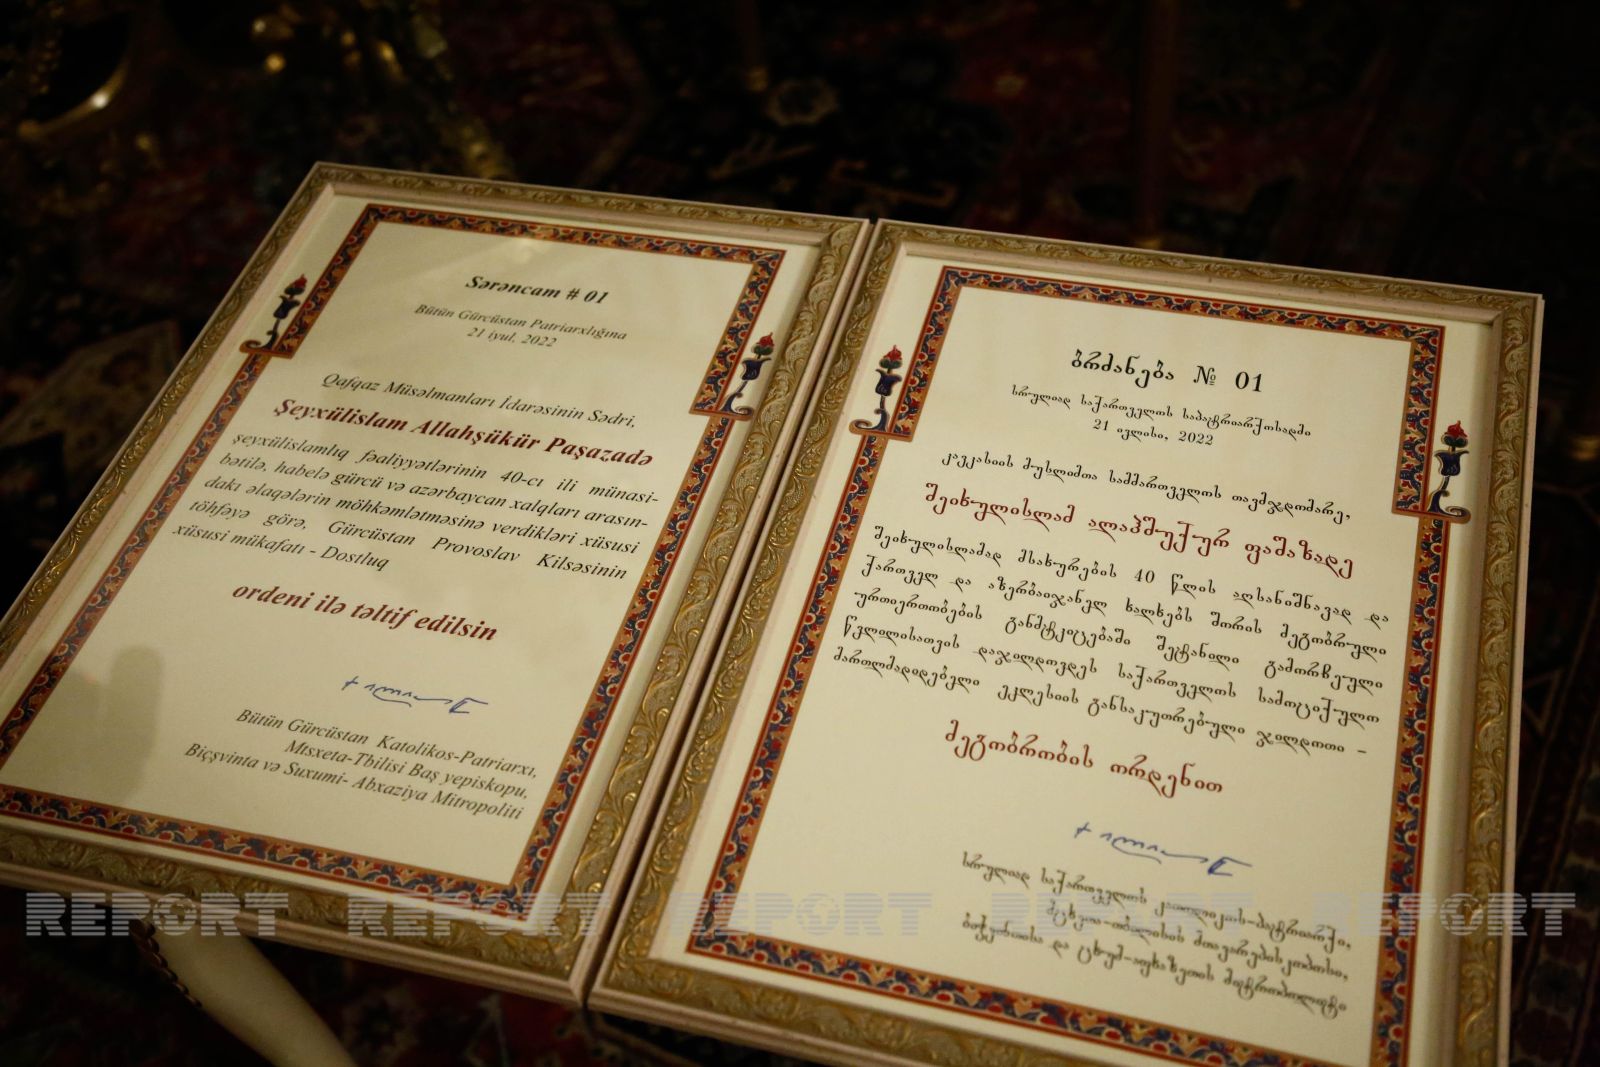 Sərəncam # 01
Bütün Gürcüstan Patriarxlığına
21 iyul, 2022
Qafqaz Müsəlmanları İdarəsinin Sədri,
Şeyxülislam Allahşükür Paşazadə
şeyxülislamlıq fəaliyyətlərinin 40-cı ili münasi-
bətilə, habelə gürcü və azərbaycan xalqları arasın-
dakı əlaqələrin möhkəmlətməsinə verdikləri xüsusi
töhfəyə görə, Gürcüstan Provoslav Kilsəsinin
xüsusi mükafatı - Dostluq
ordeni ilə təltif edilsin
Bütün Gürcüstan Katolikos-Patriarxı,
Mtsxeta-Tbilisi Baş yepiskopu,
Biçşvinta və Suxumi- Abxaziya Mitropoliti
ბრძანება № 01
სრულიად საქართველოს საპატრიარქოსადმი
21 ივლისი, 2022
კავკასიის მუსლიმთა სამმართველოს თავმჯდომარე,
შეიხულისლამ ალაჰშუქურ ფაშაზადე
შეიხულისლამად მსახურების 40 წლის აღსანიშნავად და
ქართველ და აზერბაიჯანელ ხალხებს შორის მეგობრული
ურთიერთობების განმტკიცებაში შეტანილი გამორჩეული
წვლილისათვის დაჯილდოვდეს საქართველოს სამოციქულო
მართლმადიდებელი ეკლესიის განსაკუთრებული ჯილდოთი -
მეგობრობის ორდენით
სრულიად საქართველოს კათოლიკოს-პატრიარქი,
მცხეთა-თბილისის მთავარეპისკოპოსი,
ბიჭვინთისა და ცხუმ-აფხაზეთის მიტროპოლიტი
REPORT REPORT REPORT REPORT REPORT